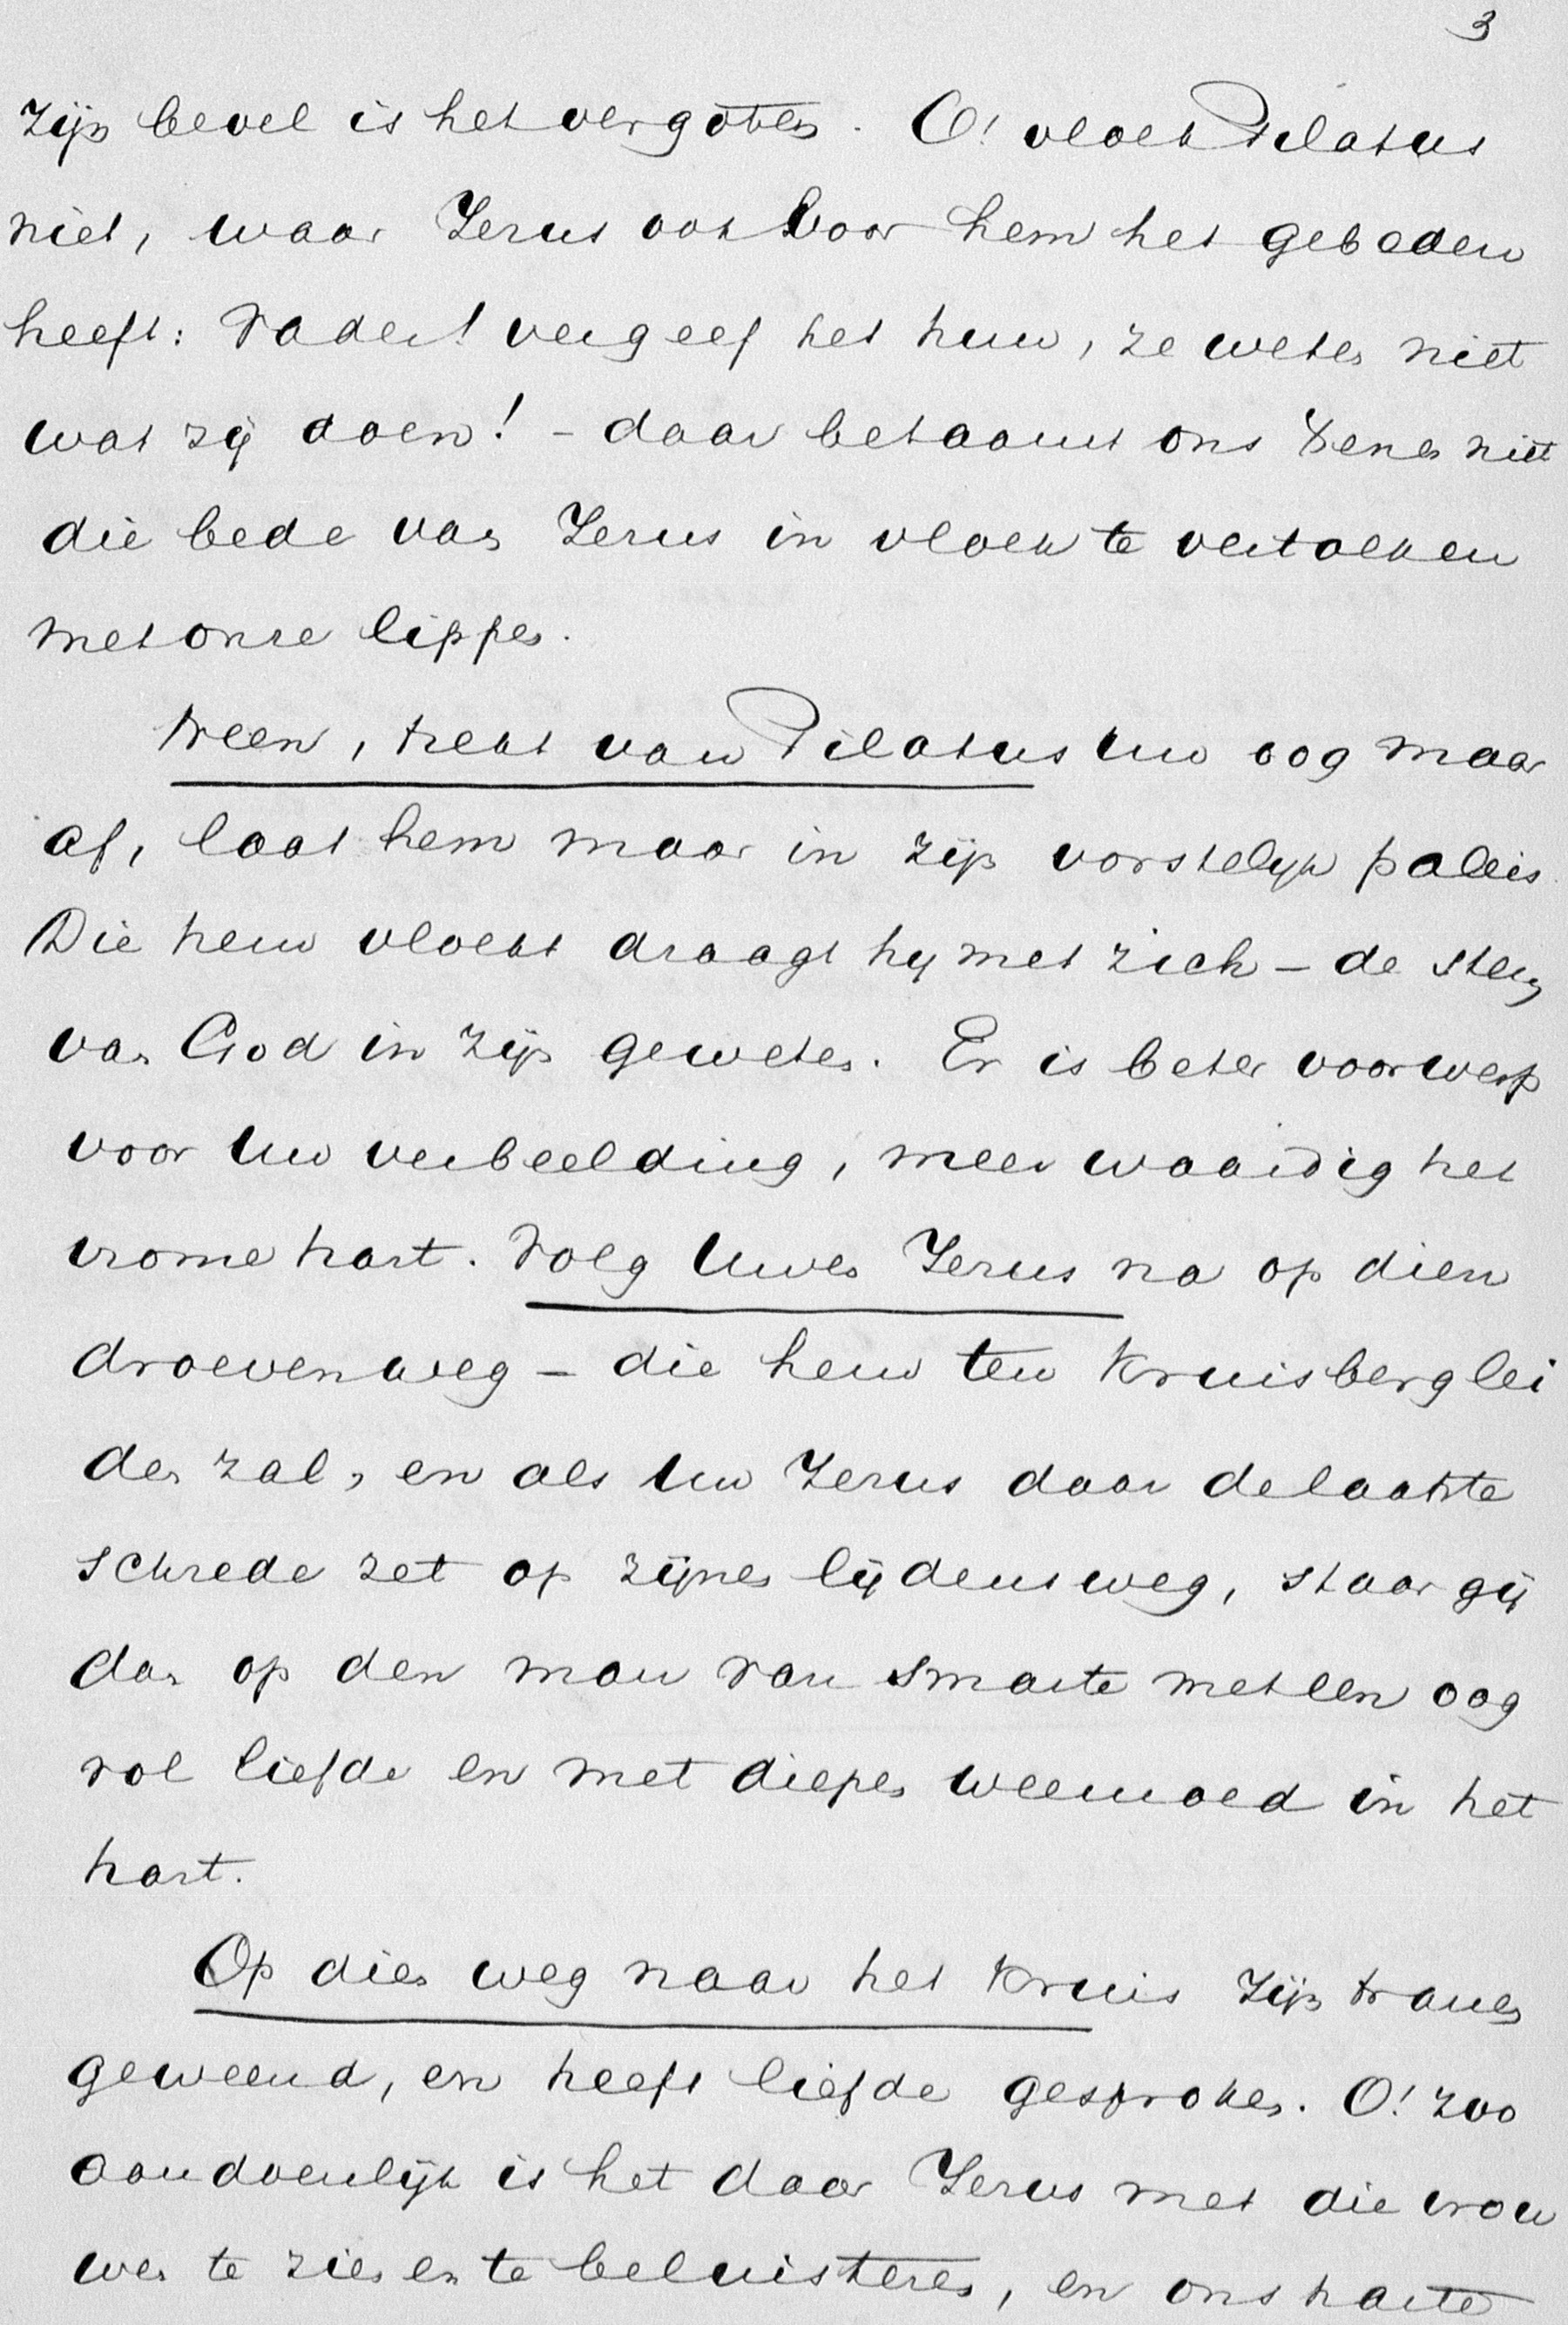 3
zijn bevel is het vergoten. O! vloek Pilatus
niet, waar Jezus ook voor hem het gebeden
heeft: Vader! vergeef het hun, ze weten niet
wat zij doen! - daar betaamt ons menschen niet
die bede van Jezus in vloek te vertolken
met onze lippen.
Neen, trekt van Pilatus uw oog maar
af, laat hem maar in zijn vorstelijk paleis.
Die hem vloekt draagt hij met zich - de stem
van God in zijn geweten. Er is beter voorwerp
voor uw verbeelding, meer waardig het
vrome hart. Volg Uwen Jezus na op dien
droeven weg - die hem ten Kruisberg lei
den zal, en als Uw Jezus daar de laatste
schrede zet op zijnen lijdensweg, staar gij
dan op den man van smarte met een oog
vol liefde en met diepen weemoed in het
hart.
Op dien weg naar het Kruis zijn tranen
geweend, en heeft liefde gesproken. O! zoo
aandoenlijk is het daar Jezus met die vrou
wen te zien en te beluisteren, en ons harte